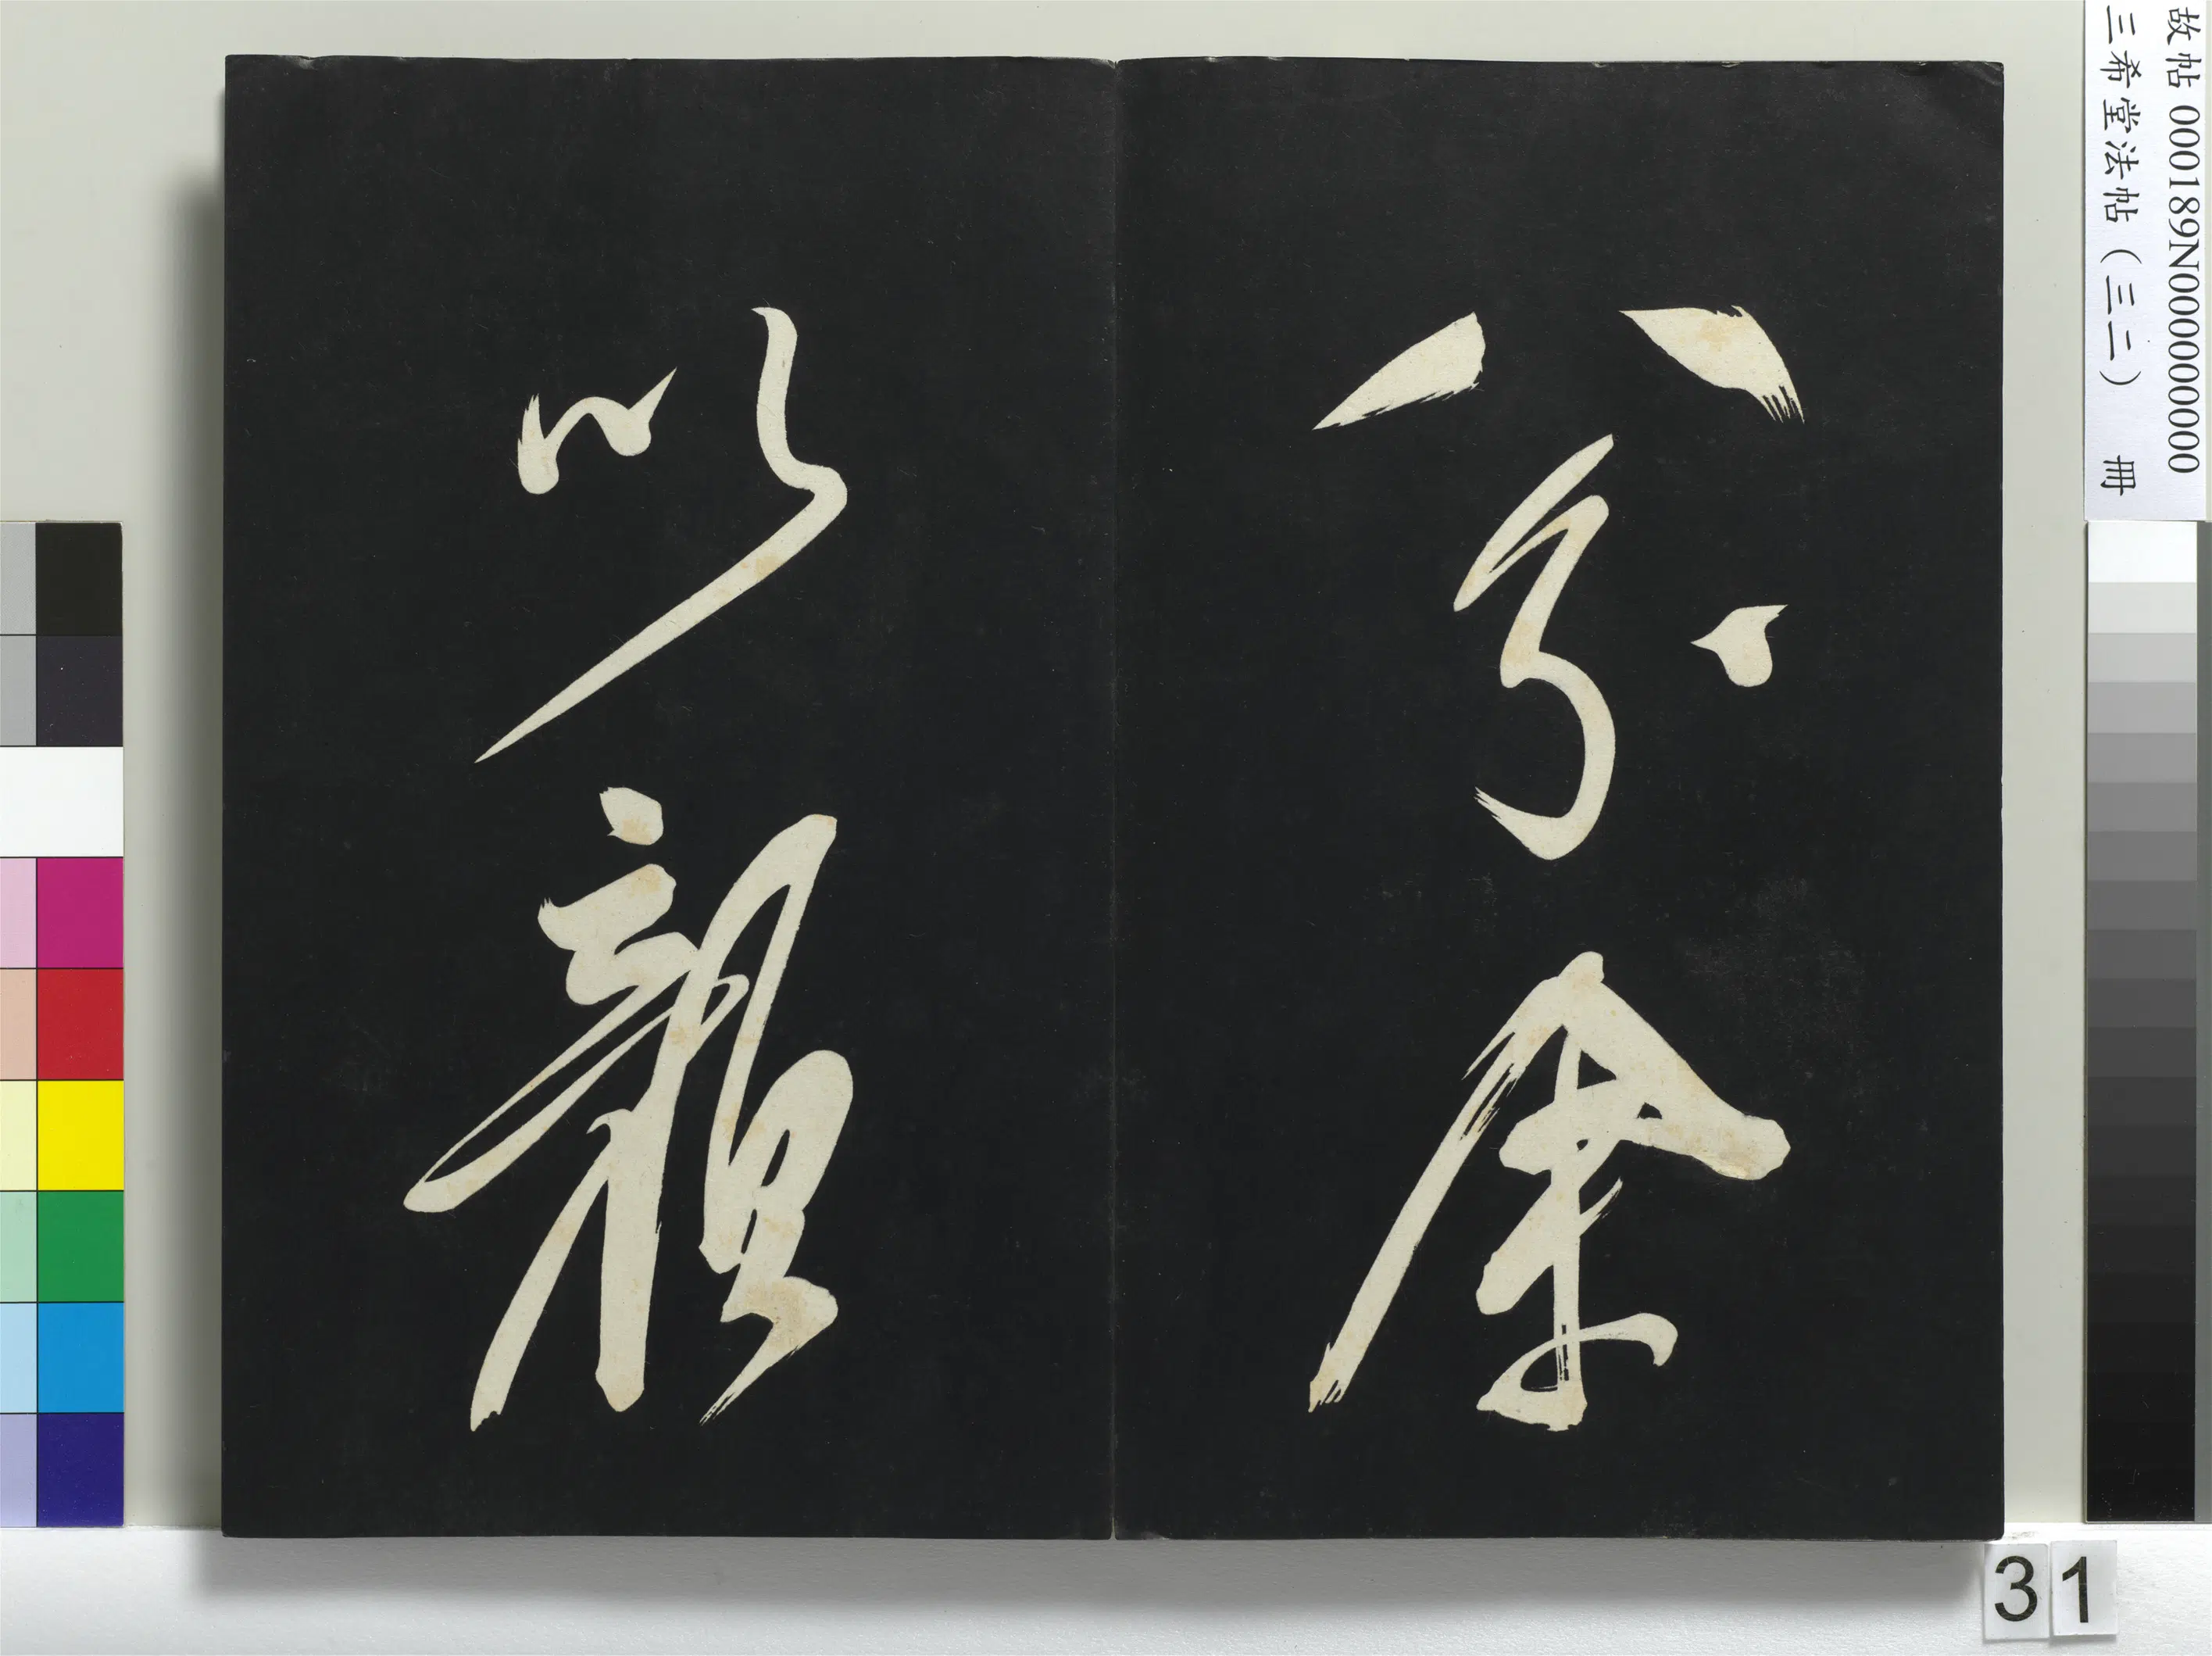 故帖 000189N000000000
三希堂法帖（三二） 冊
余
以親
31